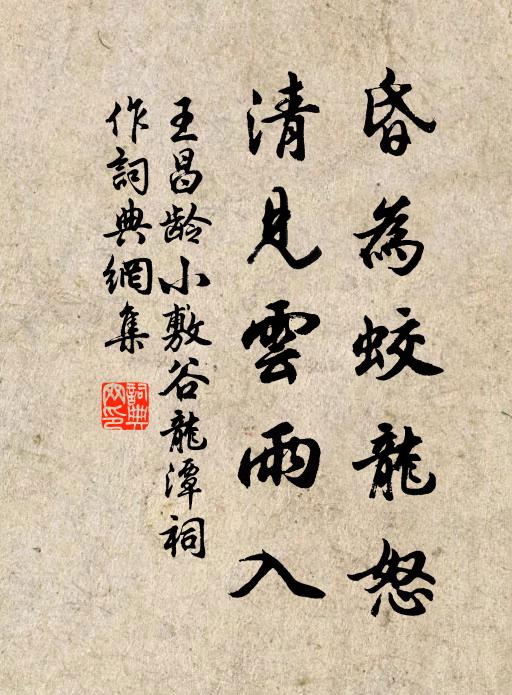 昏為蛟龍怒
清見雲雨入
王昌龄小敷谷龍潭祠
作詞典網集
詞典
网印